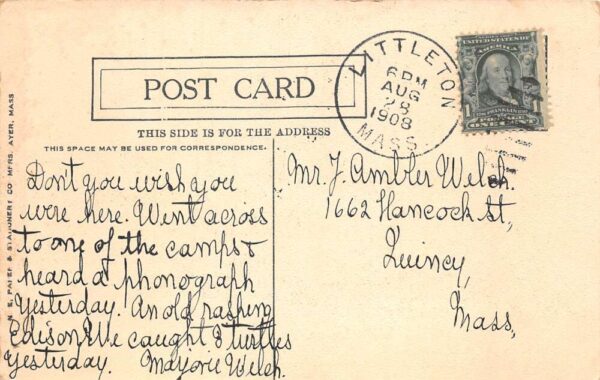 POST CARD
THIS SIDE IS FOR THE ADDRESS
THIS SPACE MAY BE USED FOR CORRESPONDENCE.
LITTLETON
6 PM
AUG
28
1908
MASS.
UNITED STATES OF
AMERICA
FRANKLIN
ONE
N. E. PAPER & STATIONERY CO MFRS, AYER, MASS
Don't you wish you
were here. Went across
to one of the camps &
heard a phonograph
yesterday. An old rasping
Edison. We caught 8 turtles
yesterday. Marjorie Welch.
Mr. J. Ambler Welch.
1662 Hancock St,
Quincy,
Mass,